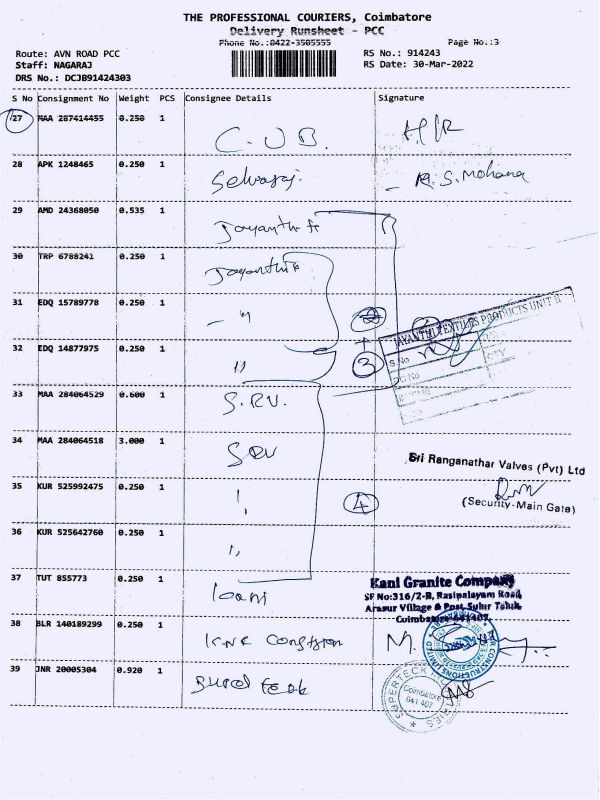 THE PROFESSIONAL COURIERS, Coimbatore
Delivery Runsheet - PCC
Phone No.:0422-3505555 Page No.:3
Route: AVN ROAD PCC RS No.: 914243
Staff: NAGARAJ RS Date: 30-Mar-2022
DRS No.: DCJB91424303
S No Consignment No Weight PCS Consignee Details Signature
27 MAA 287414455 0.250 1 C.U.B.
28 APK 1248465 0.250 1 Selvaraj. - R.S.Mohana
29 AMD 24368050 0.535 1 Jayanthi
30 TRP 6788241 0.250 1 Jayanthi
31 EDQ 15789778 0.250 1 - "
JAYANTHI TEXTILES PRODUCTS UNIT II
S.No
32 EDQ 14877975 0.250 1 " 3
33 MAA 284064529 0.600 1 S.RV.
34 MAA 284064518 3.000 1 SRV
Sri Ranganathar Valves (Pvt) Ltd
35 KUR 525992475 0.250 1 " 4
(Security-Main Gate)
36 KUR 525642760 0.250 1 "
37 TUT 855773 0.250 1 Kani
Kani Granite Company
SF No:316/2-B, Rasipalayam Road,
Arasur Village & Post, Sulur Taluk,
Coimbatore-641407.
38 BLR 140189299 0.250 1 KNR
39 JNR 20005304 0.920 1
Coimbatore
641 407